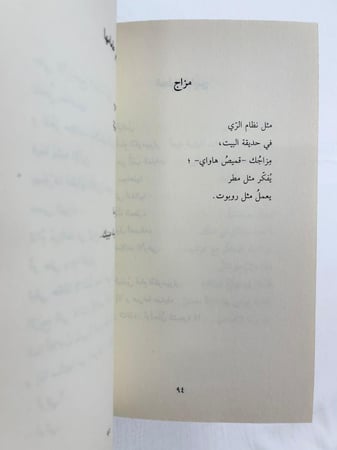 مزاج
مثل نظام الرّي
في حديقة البيت،
مِزاجُك -قميصُ هاواي- ؛
يُفكّر مثل مطر
يعملُ مثل روبوت.
٩٤